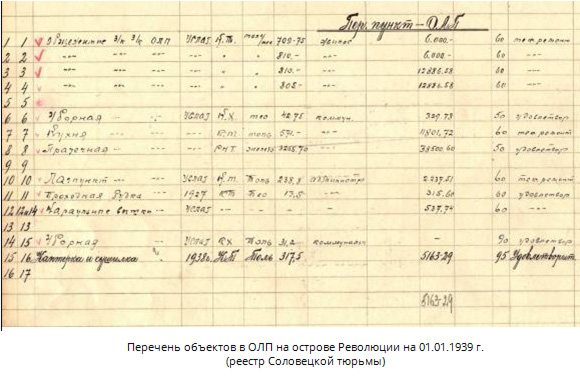 Пер. пункт — ОЛП
1 1 Общежитие з/к з/к ОЛП УСЛАГ К.Т. толь 709-75 жилое 6.000.- 60 теп. ремонт
2 2 -"- -"- " " 810.- -"- 6.000.- 60 -"-
3 3 -"- -"- " " 810.- -"- 12886.58 60 -"-
4 4 -"- -"- " " 802.- -"- 60 -"-
5 5
6 6 Уборная УСЛАГ К.Х тес 42.75 коммун. 329.73 50 удовлетвор
7 7 Кухня К.Т. толь 574.- 11801.72 60 теп ремонт
8 8 Прачечная 3288.70 38500.60 50 удовлетвор
9 9
10 10 Лазпункт УСЛАГ К.Т. Толь 238,8 администр 2237.51 60 теп ремонт
11 11 Проходная будка 1927 КТ Тес 17,5 315.60 60 удовлетвор
12 12и14 Караульные вышки УСЛАГ 537.74 60
13 13
14 15 Уборная УСЛАГ КХ Толь 31,2 коммунальн — 90 удовлетвор
15 16 Каптерка и сушилка 1938г. К.Т. Толь 317,5 5163-29 95 Удовлетворит.
16 17
5163-29
Перечень объектов в ОЛП на острове Революции на 01.01.1939 г.
(реестр Соловецкой тюрьмы)